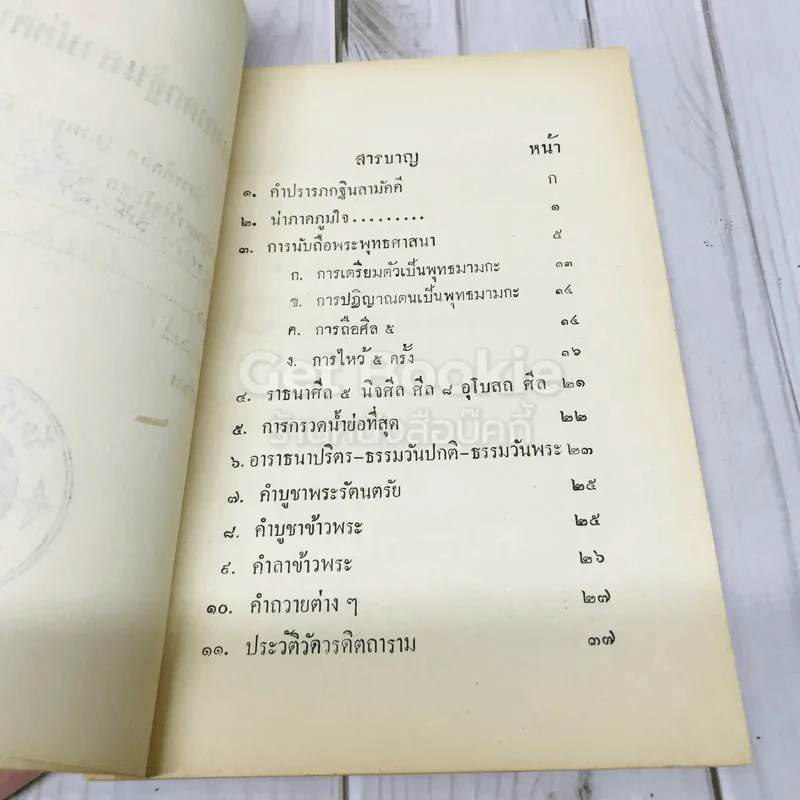 สารบาญ หน้า
๑. คำปรารภกฐินสามัคคี ก
๒. น่าภาคภูมใจ......... ๑
๓. การนับถือพระพุทธศาสนา ๕
ก. การเตรียมตัวเป็นพุทธมามกะ ๑๓
ข. การปฏิญาณตนเป็นพุทธมามกะ ๑๔
ค. การถือศีล ๕ ๑๔
ง. การไหว้ ๕ ครั้ง ๑๖
Get Bookie
๔. ราธนาศีล ๕ นิจศีล ศีล ๘ อุโบสถ ศีล ๒๑
๕. การกรวดน้ำย่อที่สุด ๒๒
ร้านหนังสือบุ๊คกี้
๖. อาราธนาปริตร-ธรรมวันปกติ-ธรรมวันพระ ๒๓
๗. คำบูชาพระรัตนตรัย ๒๕
๘. คำบูชาข้าวพระ ๒๕
๙. คำลาข้าวพระ ๒๖
๑๐. คำถวายต่าง ๆ ๒๗
๑๑. ประวัติวัดวรดิตถาราม ๓๗